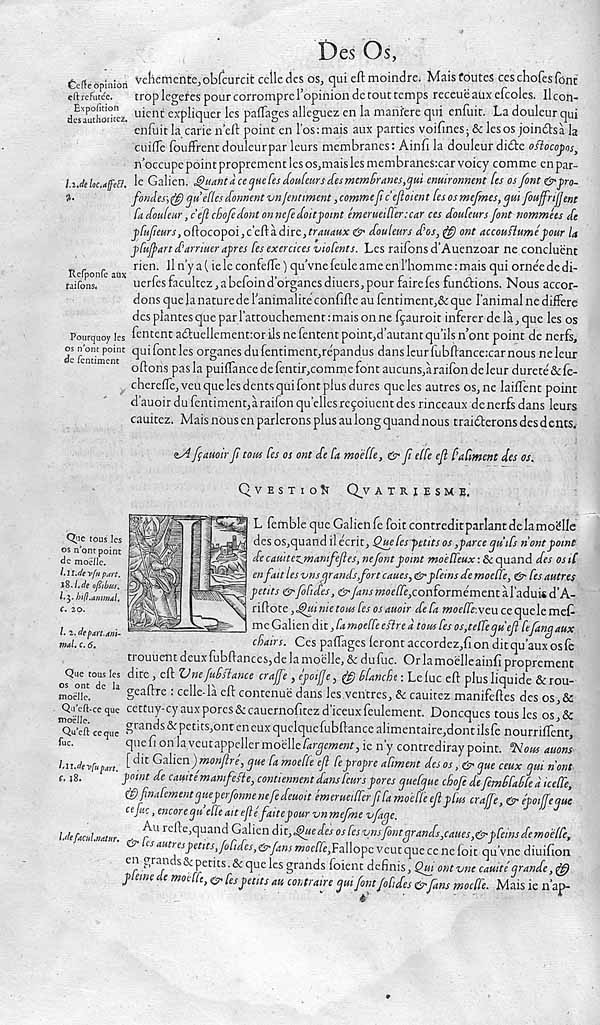 Des Os,
Ceste opinion
est refutée.
Exposition
des authoritez.
l.2. de loc. affect.
Response aux
raisons.
Pourquoy les
os n'ont point
de sentiment
veheme͂nte, obscurcit celle des os, qui est moindre. Mais toutes ces choses sont
trop legeres pour corrompre l'opinion de tout temps receuë aux escoles. Il con-
uient expliquer les passages alleguez en la maniere qui ensuit. La douleur qui
ensuit la carie n'est point en l'os: mais aux parties voisines; & les os joincts à la
cuisse souffrent douleur par leurs membranes: Ainsi la douleur dicte ostocopos,
n'occupe point proprement les os, mais les membranes: car voicy comme en par-
le Galien. Quant à ce que les douleurs des membranes, qui enuironnent les os sont & pro-
fondes, & qu'elles donnent vn sentiment, comme si c'estoient les os mesmes, qui souffrissent
la douleur, c'est chose dont on ne se doit point émerueiller: car ces douleurs sont nommées de
plusieurs, ostocopoi, c'est à dire, trauaux & douleurs d'os, & ont accoustumé pour la
pluspart d'arriuer apres les exercices violents. Les raisons d'Auenzoar ne concluënt
rien. Il n'y a (ie le confesse) qu'vne seule ame en l'homme: mais qui ornée de di-
uerses facultez, a besoin d'organes diuers, pour faire ses functions. Nous accor-
dons que la nature de l'animalité consiste au sentiment, & que l'animal ne differe
des plantes que par l'attouchement: mais on ne sçauroit inferer de là, que les os
sentent actuellement: or ils ne sentent point, d'autant qu'ils n'ont point de nerfs,
qui sont les organes du sentiment, répandus dans leur substance: car nous ne leur
ostons pas la puissance de sentir, comme font aucuns, à raison de leur dureté & se-
cheresse, veu que les dents qui sont plus dures que les autres os, ne laissent point
d'auoir du sentiment, à raison qu'elles reçoiuent des rinceaux de nerfs dans leurs
cauitez. Mais nous en parlerons plus au long quand nous traicterons des dents.
A sçauoir si tous les os ont de la moëlle, & si elle est l'aliment des os.
QVESTION QVATRIESME.
Que tous les
os n'ont point
de moëlle.
l.11. de vsu part.
18. l. de ossibus.
l.3. hist. animal.
c. 20.
l. 2. de part. ani-
mal. c. 6.
Que tous les
os ont de la
moëlle.
Qu'est-ce que
moëlle.
Qu'est ce que
suc.
l.11. de vsu part.
c. 18.
l. de facul. natur.
IL semble que Galien se soit contredit parlant de la moëlle
des os, quand il écrit, Que les petits os, parce qu'ils n'ont point
de cauitez manifestes, ne sont point moëlleux: & quand des os il
en fait les vns grands, fort caues, & pleins de moelle, & les autres
petits & solides, & sans moelle, conformément à l'aduis d'A-
ristote, Qui nie tous les os auoir de la moelle. veu ce que le mes-
me Galien dit, la moelle estre à tous les os, telle qu'est le sang aux
chairs. Ces passages seront accordez, si on dit qu'aux os se
trouuent deux substances, de la moëlle, & du suc. Or la moëlle ainsi proprement
dite, est Vne substance crasse, époisse, & blanche: Le suc est plus liquide & rou-
geastre: celle-là est contenuë dans les ventres, & cauitez manifestes des os, &
cettuy-cy aux pores & cauernositez d'iceux seulement. Doncques tous les os, &
grands & petits, ont en eux quelque substance alimentaire, dont ils se nourrissent,
que si on la veut appeller moëlle largement, ie n'y contrediray point. Nous auons
[dit Galien) monstré, que la moelle est le propre aliment des os, & que ceux qui n'ont
point de cauité manifeste, contiennent dans leurs pores quelque chose de semblable à icelle,
& finalement que personne ne se deuoit émerueiller si la moelle est plus crasse, & époisse que
ce suc, encore qu'elle ait esté faite pour vn mesme vsage.
Au reste, quand Galien dit, Que des os les vns sont grands, caues, & pleins de moëlle,
& les autres petits, solides, & sans moelle, Fallope veut que ce ne soit qu'vne diuision
en grands & petits. & que les grands soient definis, Qui ont vne cauité grande, &
pleine de moëlle, & les petits au contraire qui sont solides & sans moelle. Mais ie n'ap-